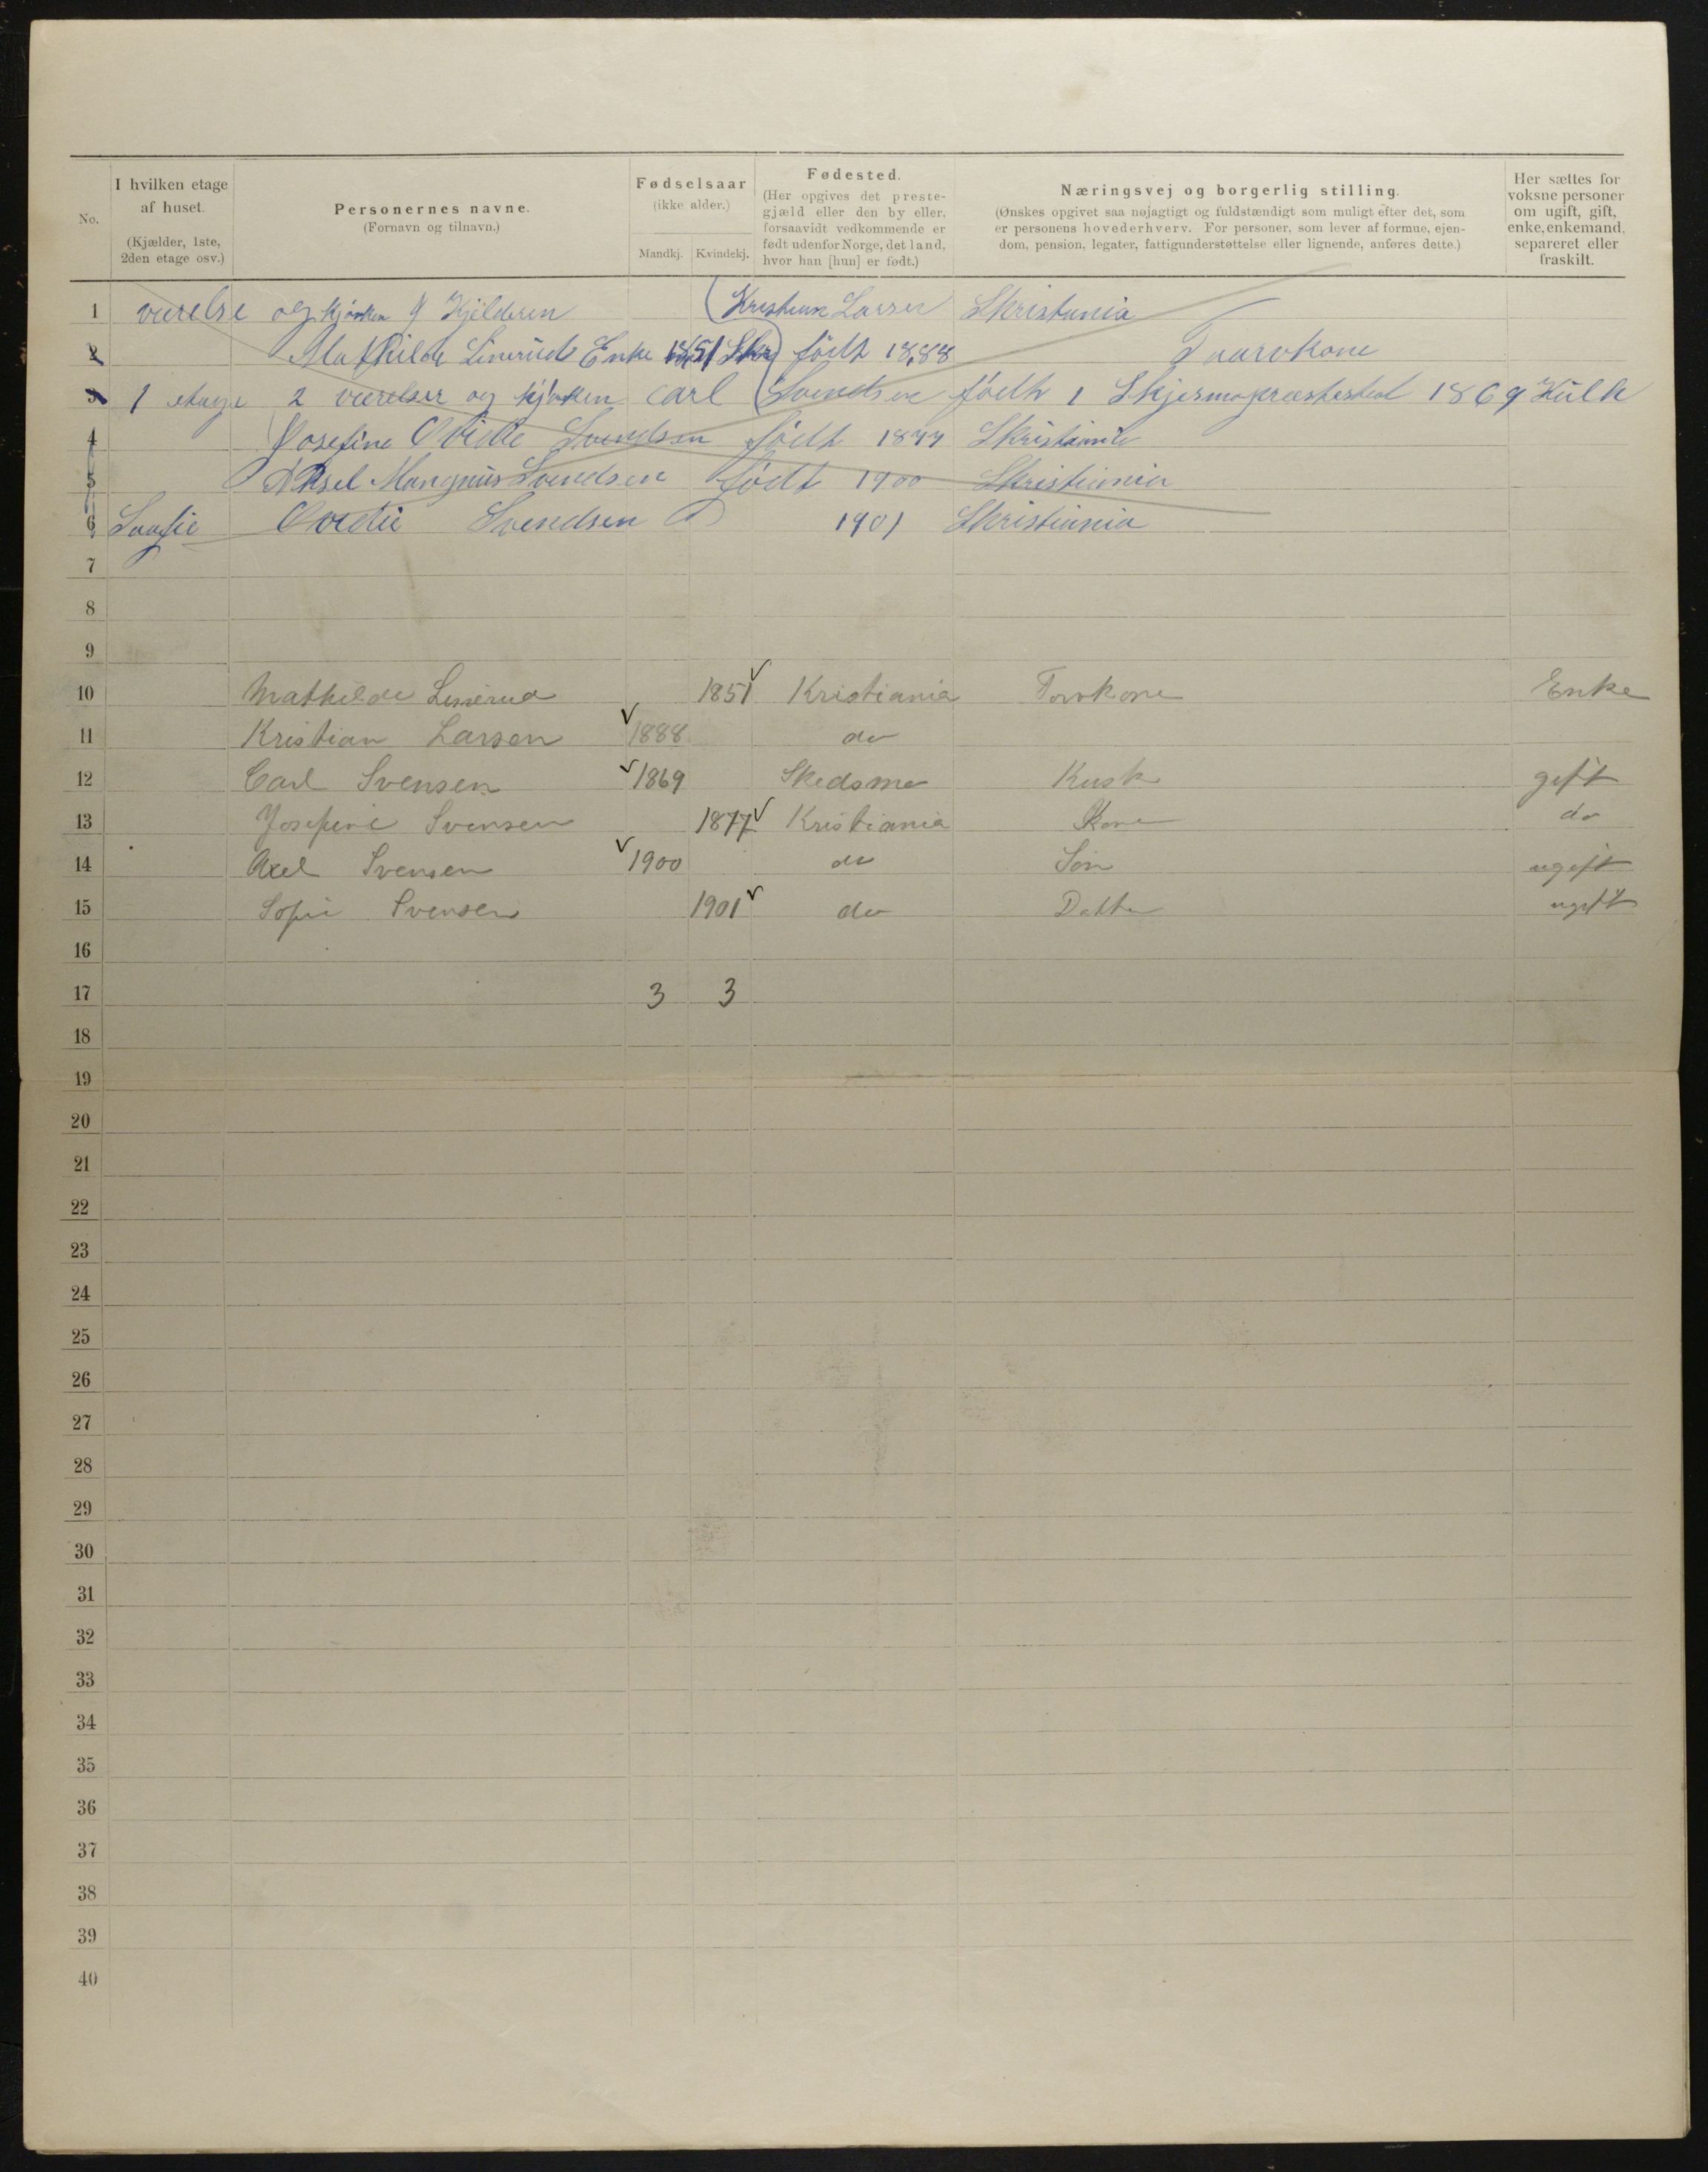 No.
I hvilken etage af huset. (Kjælder, 1ste, 2den etage osv.)
Personernes navne. (Fornavn og tilnavn.)
Fødselsaar (ikke alder.) Mandkj. Kvindekj.
Fødested. (Her opgives det prestegjæld eller den by eller, forsaavidt vedkommende er født udenfor Norge, det land, hvor han [hun] er født.)
Næringsvej og borgerlig stilling. (Ønskes opgivet saa nøjagtigt og fuldstændigt som muligt efter det, som er personens hovederhverv. For personer, som lever af formue, ejendom, pension, legater, fattigunderstøttelse eller lignende, anføres dette.)
Her sættes for voksne personer om ugift, gift, enke, enkemand, separeret eller fraskilt.
1 værelse og kjøken I Kjelderen Larsen Skristania
2 Mathilde Linerüds Enke 1851 født 1888 Taarvkone
3 1 etage 2 værelser og kjøken Carl Svendsen født 1869
4 Josefine Ovidie Svendsen født 1877 Skristiania
5 Aksel Mangnüs Svendsen født 1900 Skristiania
6 Svendsen 1901 Skristiania
7
8
9
10 Mathilde Linnerud 1851 Kristiania Torvkone Enke
11 Kristian Larsen 1888 do
12 Carl Svensen 1869 Skedsmo Kusk gift
13 Josefine Svensen 1877 Kristiania Kone do
14 Axel Svensen 1900 do Søn ugift
15 Sofie Svensen 1901 do Datter ugift
16
17 3 3
18
19
20
21
22
23
24
25
26
27
28
29
30
31
32
33
34
35
36
37
38
39
40